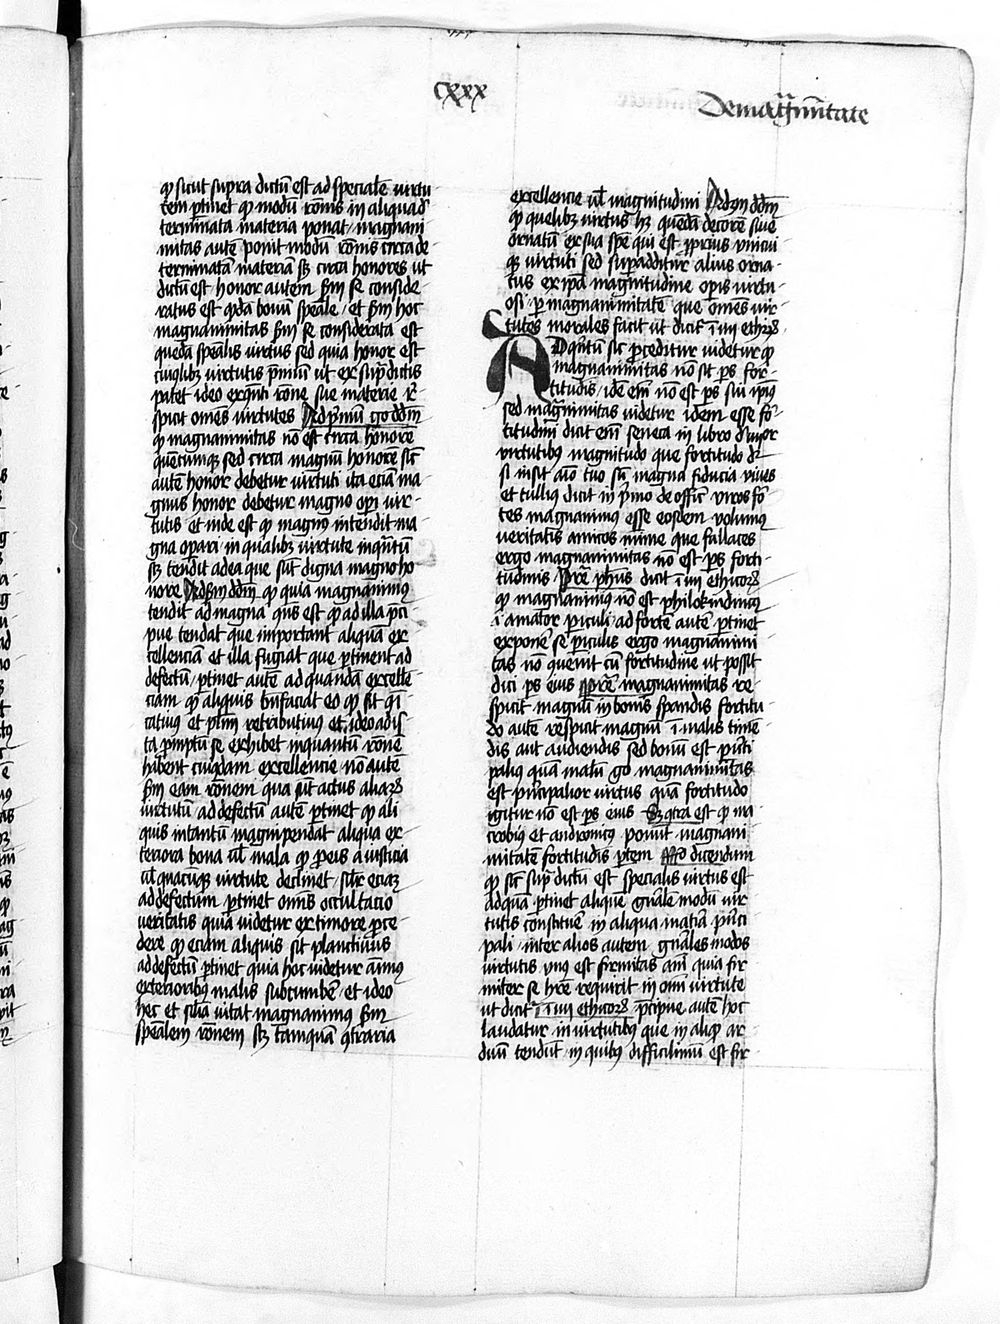 cxxx
De magnanimitate
qꝫ sicut supra dictū est ad speciale virtu
tem ꝑtinet ꝙ modū rōnis in aliqua d̕
terminata materia ponat / magnani
mitas autē ponit modū rōnis circa de-
terminatā materiā sꝫ circa honores ut
dictū est / honor autem ẜm se conside-
ratus est qdā bonū speāle / et ẜm hoc
magnanimitas ẜm se considerata est
quedā speālis virtus sed quia honor est
cuiuslibꝫ virtutis p̄miū ut ex sup̄dictis
patet ideo ex q̄nti rōne sue materie r̄-
spicit omēs virtutes Ad p̄mū g̊ dd̄m
ꝙ magnanimitas nō est circa honorē
quecumqꝫ sed circa magnū honorē sic̄
autē honor debetur virtuti ita eciā ma
gnus honor debetur magno oꝑi vir-
tutis et inde est ꝙ magnꝰ intendit ma
gna oꝑari in qualibꝫ virtute inq̄ntū
sꝫ tendit ad ea que sūt digna magno ho
nore Ad ẜm dd̄m ꝙ quia magnanimꝰ
tendit ad magna q̄ns est ꝙ ad illa p̄ci
pue tendat que important aliquā ex
cellenciā et illa fugiat que ꝑtinent ad
defectū / ꝑtinet autē ad quandā excellē
ciam ꝙ aliquis bn̄faciat eo ꝙ sit
catiuꝰ et plim̄ retributiuꝰ et ideo ad iſ
ta ꝓmptū se exhibet inquantū rōnē
habent cuiꝰdam excellencie nō autē
ẜm eam rōnem qua sūt actus aliaꝝ
virtutū / ad defectū autē ꝑtinet ꝙ ali
quis intantū magnipendat aliqua ex-
teriora bona ul̄ mala ꝙ ꝓ eis a iusticia
ul̄ quacūqꝫ virtute declinet / sil̄r eciaꝫ
ad defectum ꝑtinet omīs occultacio
veritatis quia videtur ex timore ꝓce-
dere ꝙ eciam aliquis sit planctiuus
ad defectū ꝑtinet quia hoc videtur aīmꝰ
exterioribꝫ malis subcumbē / et ideo
hec et silia vitat magnanimꝰ ẜm
speālem rōnem sꝫ tamquā ꝯtraria
excellencie ul̄ magnitudini Ad 3m dd̄m
ꝙ quelibꝫ virtus hꝫ quedā decorē siue
ornatū ex sua spē qui est ꝓprius vnicui
qꝫ virtuti sed suꝑadditur alius orna-
tus ex ip̄a magnitudine oꝑis virtu-
osi / ꝑ magnanimitatē que omēs vir-
tutes morales facit ut dicit̄ ī iiii ethicꝝ
AD quītū sic ꝓceditur videtur ꝙ
magnanimitas nō sit ꝑs for-
titudīs / idē em̄ nō est ꝑs sui ip̄iꝰ
sed magnimitas videtur idem esse fō-
titudini dicit em̄ seneca in libro
virtutibꝫ magnitudo que fortitudo dr̄
si insit aīo tuo cū magna fiducia viues
et tullius dicit in p̄mo de offic̄ viros fō-
tes magnanimos esse eosdem volumꝰ
veritatis amicos mīme que fallaces
ergo magnanimitas nō est ꝑs forti-
tudinis Pr̄ea ph̄us dicit ī iiii ethicoꝝ
ꝙ magnanimꝰ nō est philokindinꝰ
i amator ꝑiculi / ad fortē autē ꝑtinet
exponē se ꝑiculis ergo magnanimi
tas nō ꝯuenit cū fortitudine ut possit
dici ꝑs eius Pr̄ea magnanimitas re-
spicit magnū in bonis sꝑandis fortitu-
do autē respicit magnū ī malis timē-
dis aut audiendis sed bonū est p̄nci
palius quā malū g̊ magnanimitas
est principalior virtus quā fortitudo
igitur nō est ꝑs eius Sꝫ ꝯtra est ꝙ ma
crobiꝰ et andronicꝰ ponūt magnani
mitatē fortitudīs ꝑtem Rn̄o dicendum
ꝙ sic̄ sup̄ dictū est specialis virtus est
ad quā ꝑtinet aliquē gn̄ale modū vir
tutis constituē in aliqua matīa p̄nci
pali / inter alios autem gn̄ales modos
virtutis vnꝰ est firmitas aīi quia fir
miter se hr̄e requirit̄ in om̄i virtute
ut dicit̄ ī iiii ethicoꝝ p̄cipue autē hoc
laudatur in virtutibꝫ que in aliqꝫ ar-
duū tendūt / in quibꝫ difficilimū est fir-